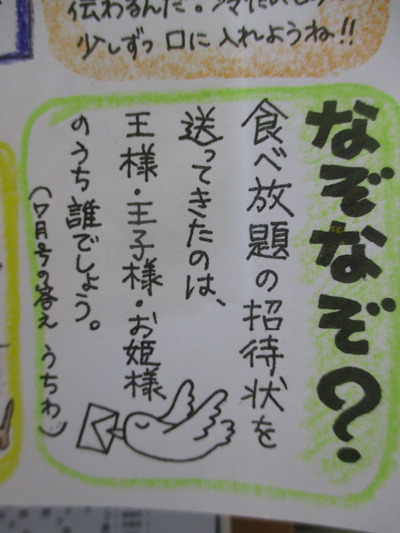 少しずつ口に入れようね!!
なぞなぞ?
食べ放題の招待状を
送ってきたのは、
王様・王子様・お姫様
のうち誰でしょう。
(7月号の答え うちわ)